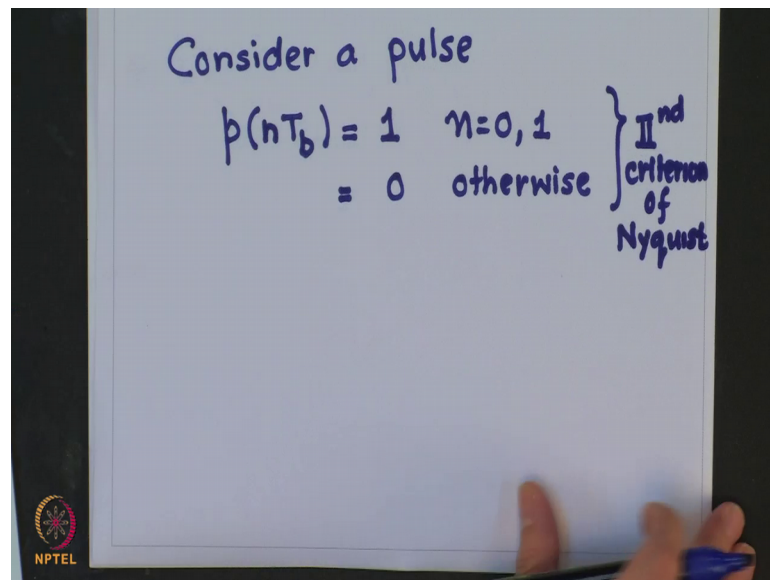 Consider a pulse
p(nT_b) = 1 n=0, 1
= 0 otherwise
} IInd
criterion
of
Nyquist
NPTEL